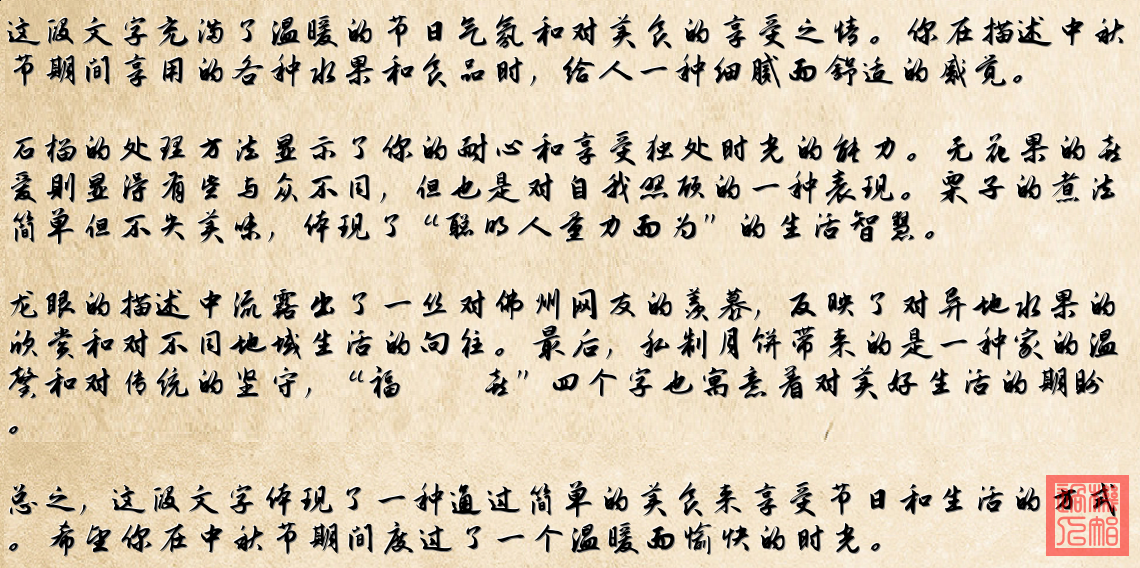 这段文字充满了温暖的节日气氛和对美食的享受之情。你在描述中秋
节期间享用的各种水果和食品时，给人一种细腻而舒适的感觉。
石榴的处理方法显示了你的耐心和享受独处时光的能力。无花果的喜
爱则显得有些与众不同，但也是对自我照顾的一种表现。栗子的煮法
简单但不失美味，体现了“聪明人重力而为”的生活智慧。
龙眼的描述中流露出了一丝对佛州网友的羡慕，反映了对异地水果的
欣赏和对不同地域生活的向往。最后，私制月饼带来的是一种家的温
馨和对传统的坚守，“福 喜”四个字也寓意着对美好生活的期盼
。
总之，这段文字体现了一种通过简单的美食来享受节日和生活的方式
。希望你在中秋节期间度过了一个温暖而愉快的时光。